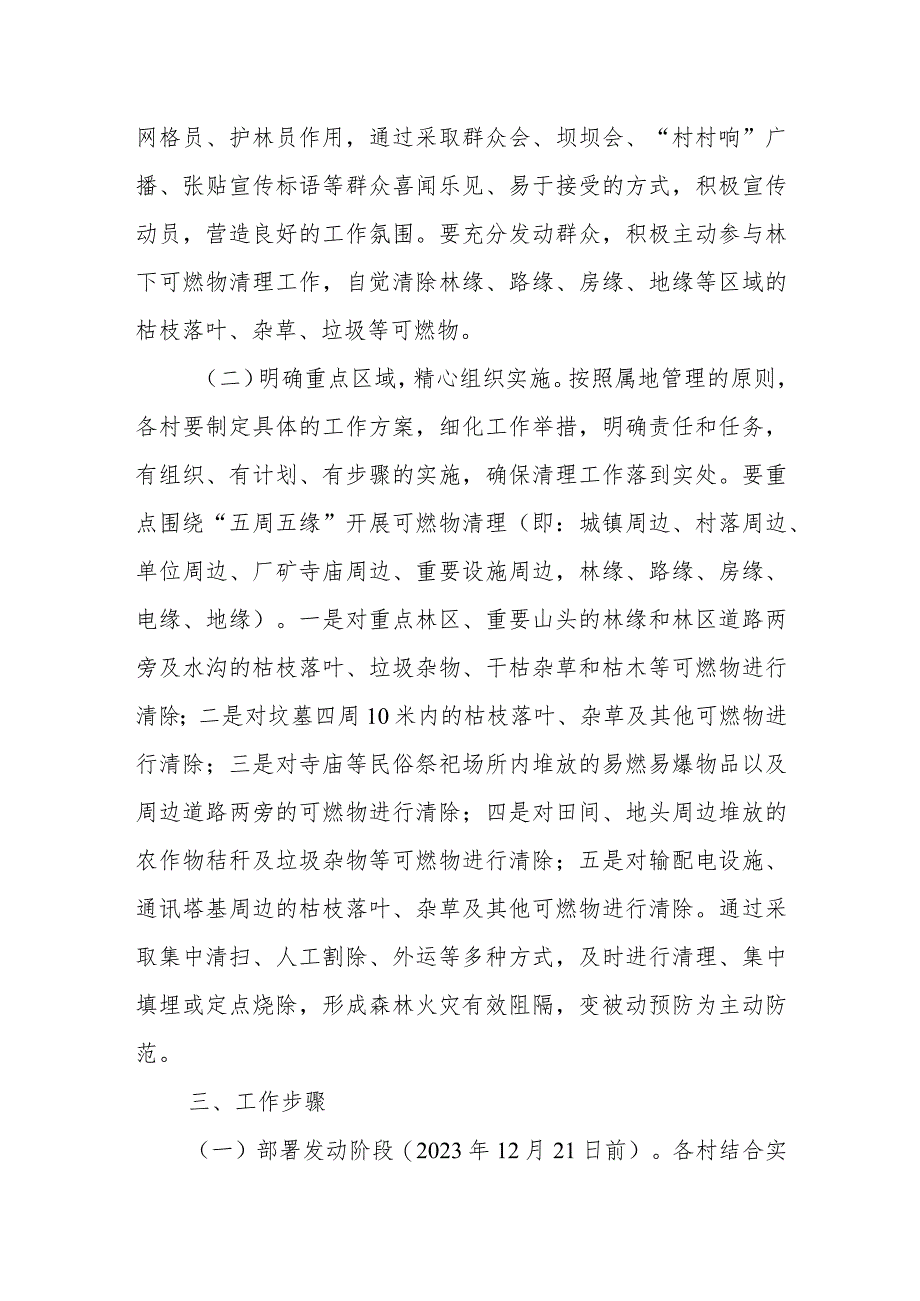 网格员、护林员作用，通过采取群众会、坝坝会、“村村响”广
播、张贴宣传标语等群众喜闻乐见、易于接受的方式，积极宣传
动员，营造良好的工作氛围。要充分发动群众，积极主动参与林
下可燃物清理工作，自觉清除林缘、路缘、房缘、地缘等区域的
枯枝落叶、杂草、垃圾等可燃物。
（二）明确重点区域，精心组织实施。按照属地管理的原则，
各村要制定具体的工作方案，细化工作举措，明确责任和任务，
有组织、有计划、有步骤的实施，确保清理工作落到实处。要重
点围绕“五周五缘”开展可燃物清理（即：城镇周边、村落周边、
单位周边、厂矿寺庙周边、重要设施周边，林缘、路缘、房缘、
电缘、地缘）。一是对重点林区、重要山头的林缘和林区道路两
旁及水沟的枯枝落叶、垃圾杂物、干枯杂草和枯木等可燃物进行
清除；二是对坟墓四周10米内的枯枝落叶、杂草及其他可燃物进
行清除；三是对寺庙等民俗祭祀场所内堆放的易燃易爆物品以及
周边道路两旁的可燃物进行清除；四是对田间、地头周边堆放的
农作物秸秆及垃圾杂物等可燃物进行清除；五是对输配电设施、
通讯塔基周边的枯枝落叶、杂草及其他可燃物进行清除。通过采
取集中清扫、人工割除、外运等多种方式，及时进行清理、集中
填埋或定点烧除，形成森林火灾有效阻隔，变被动预防为主动防
范。
三、工作步骤
（一）部署发动阶段（2023年12月21日前）。各村结合实